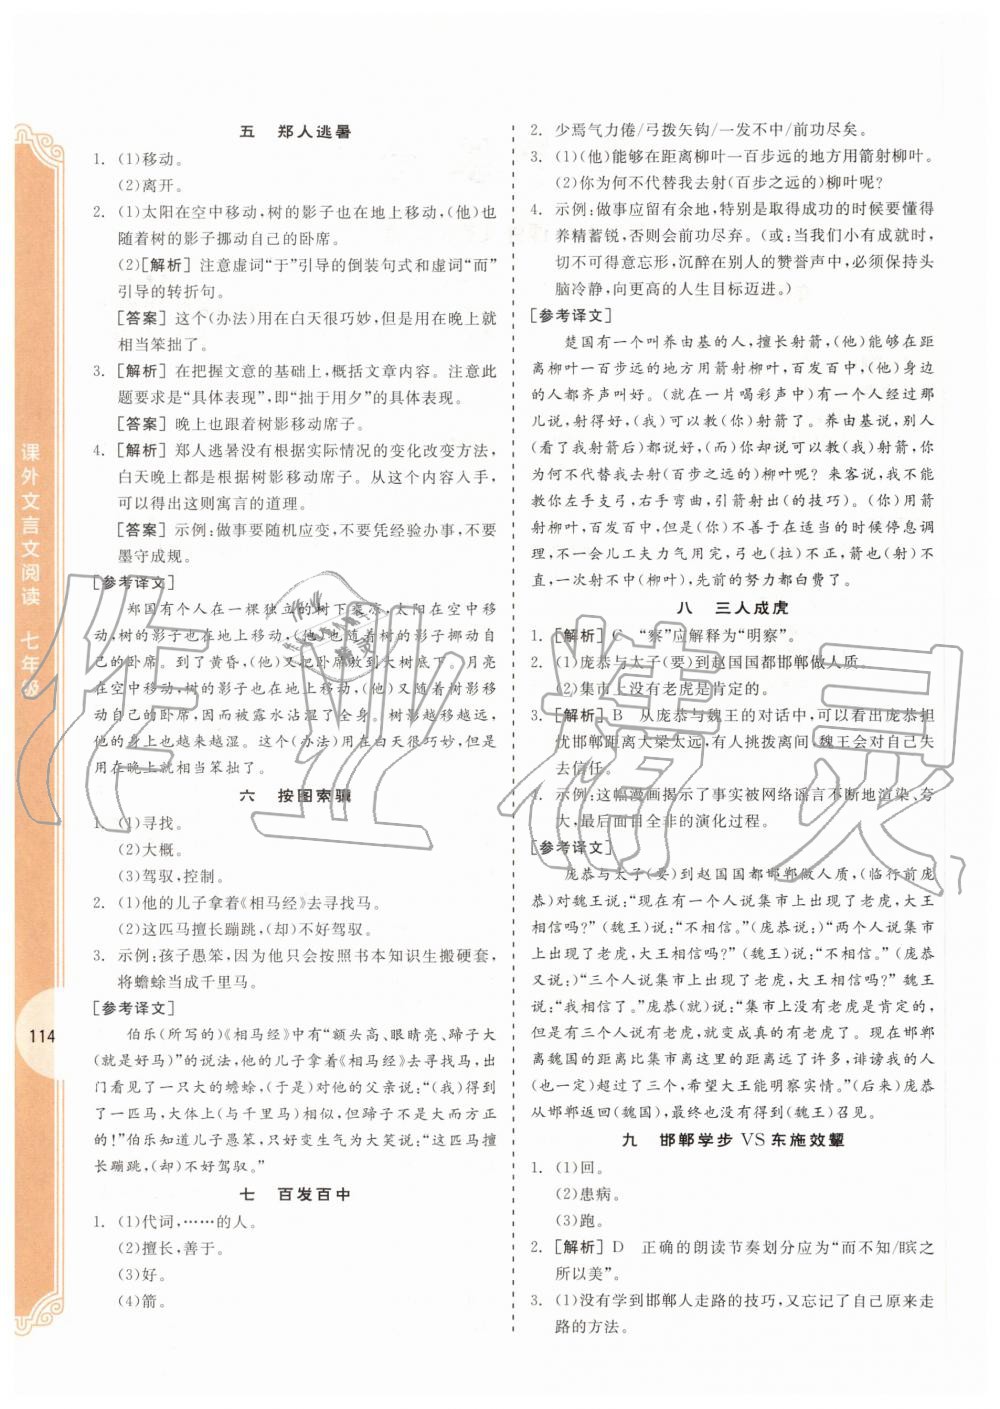 五 郑人逃暑
1. (1)移动。
(2)离开。
2. (1)太阳在空中移动,树的影子也在地上移动,(他)也
随着树的影子挪动自己的卧席。
(2)[解析] 注意虚词“于”引导的倒装句式和虚词“而”
引导的转折句。
[答案] 这个(办法)用在白天很巧妙,但是用在晚上就
相当笨拙了。
3. [解析] 在把握文意的基础上,概括文章内容。注意此
题要求是“具体表现”,即“拙于用夕”的具体表现。
[答案] 晚上也跟着树影移动席子。
4. [解析] 郑人逃暑没有根据实际情况的变化改变方法,
白天晚上都是根据树影移动席子。从这个角度入手,
可以得出这则寓言的道理。
[答案] 示例:做事要随机应变,不要凭经验办事,不要
墨守成规。
[参考译文]
郑国有个人在一棵独立的树下乘凉,太阳在空中移
动,树的影子也在地上移动,(他)也随着树的影子挪动自
己的卧席。到了黄昏,(他)又把卧席放到大树底下。月亮
在空中移动,树的影子也在地上移动,(他)又随着树影挪动
自己的卧席,因而被露水沾湿了全身。树影越移越远,
他的身上也越来越湿。这个(办法)用在白天很巧妙,但是
用在晚上就相当笨拙了。
六 按图索骥
1. (1)寻找。
(2)大概。
(3)驾驭,控制。
2. (1)他的儿子拿着《相马经》去找马。
(2)这匹马擅长蹦跳,(却)不好驾驭。
3. 示例:孩子愚笨,因为他只会按照书本知识生搬硬套,
将蟾蜍当成千里马。
[参考译文]
伯乐(所写的)《相马经》中有“额头高、眼睛亮、蹄子大
(就是好马)”的说法,他的儿子拿着《相马经》去寻找马,出
门看见了一只大的蟾蜍,(于是)对他的父亲说:“(我)得到
了一匹马,大体上(与千里马)相似,但蹄子不是大而方正
的!”伯乐知道儿子愚笨,只好变生气为大笑说:“这匹马擅
长蹦跳,(却)不好驾驭。”
七 百发百中
1. (1)代词,……的人。
(2)擅长,善于。
(3)好。
(4)箭。
2. 少焉气力倦/弓拨矢钩/一发不中/前功尽矣。
3. (1)(他)能够在距离柳叶一百步远的地方用箭射柳叶。
(2)你为何不代替我去射(百步之远的)柳叶呢?
4. 示例:做事应留有余地,特别是取得成功的时候要懂得
养精蓄锐,否则会前功尽弃。(或:当我们小有成就时,
切不可得意忘形,沉醉在别人的赞誉声中,必须保持头
脑冷静,向更高的人生目标迈进。)
[参考译文]
楚国有一个叫养由基的人,擅长射箭,(他)能够在距
离柳叶一百步远的地方用箭射柳叶,百发百中,(他)身边
的人都齐声叫好。(就在一片喝彩声中)有一个人经过那
儿说,射得好,(我)可以教(你)射箭了。养由基说,别人
(看了我射箭后)都说好,(而)你却说可以教(我)射箭,你
为何不代替我去射(百步之远的)柳叶呢?来客说,我不能
教你左手支弓,右手弯曲,引箭射出(的技巧)。(你)用箭
射柳叶,百发百中,但是(你)不善于在适当的时候停息调
理,不一会儿工夫力气用完,弓也(拉)不正,箭也(射)不
直,一次射不中(柳叶),先前的努力都白费了。
八 三人成虎
1. [解析] C “察”应解释为“明察”。
2. (1)庞恭与太子(要)到赵国国都邯郸做人质。
(2)集市上没有老虎是肯定的。
3. [解析] B 从庞恭与魏王的对话中,可以看出庞恭担
忧邯郸距离大梁太远,有人挑拨离间,魏王会对自己失
去信任。
4. 示例:这幅漫画揭示了事实被网络谣言不断地渲染、夸
大,最后面目全非的演化过程。
[参考译文]
庞恭与太子(要)到赵国国都邯郸做人质,(临行前庞
恭)对魏王说:“现在有一个人说集市上出现了老虎,大王
相信吗?”(魏王)说:“不相信。”(庞恭说:)“两个人说集市
上出现了老虎,大王相信吗?”(魏王)说:“不相信。”(庞恭
又说:)“三个人说集市上出现了老虎,大王相信吗?”魏王
说:“我相信了。”庞恭(就)说:“集市上没有老虎是肯定的,
但是有三个人说有老虎,就变成真的有老虎了。现在邯郸
离魏国的距离比集市离这里的距离远了许多,诽谤我的人
(也)超过了三个,希望大王能明察实情。”(后来)庞恭
从邯郸返回(魏国),最终也没有得到(魏王)召见。
九 邯郸学步 VS 东施效颦
1. (1)回。
(2)患病。
(3)跑。
2. [解析] D 正确的朗读节奏划分应为“而不知/矉之
所以美”。
3. (1)没有学到邯郸人走路的技巧,又忘记了自己原来走
路的方法。
课外文言文阅读 七年级
114
作业精灵